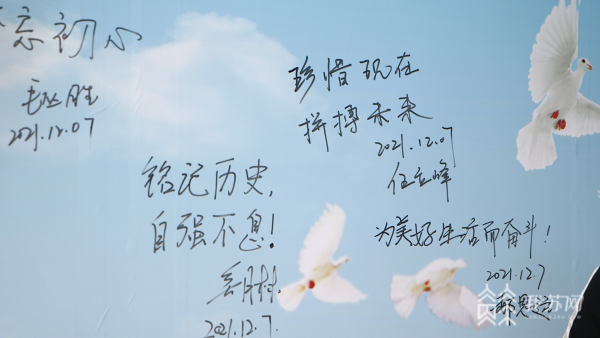 忘初心
2021.12.07
珍惜现在
拼搏未来
2021.12.07
任立峰
铭记历史,
自强不息!
2021.12.7.
为美好生活而奋斗!
2021.12.7